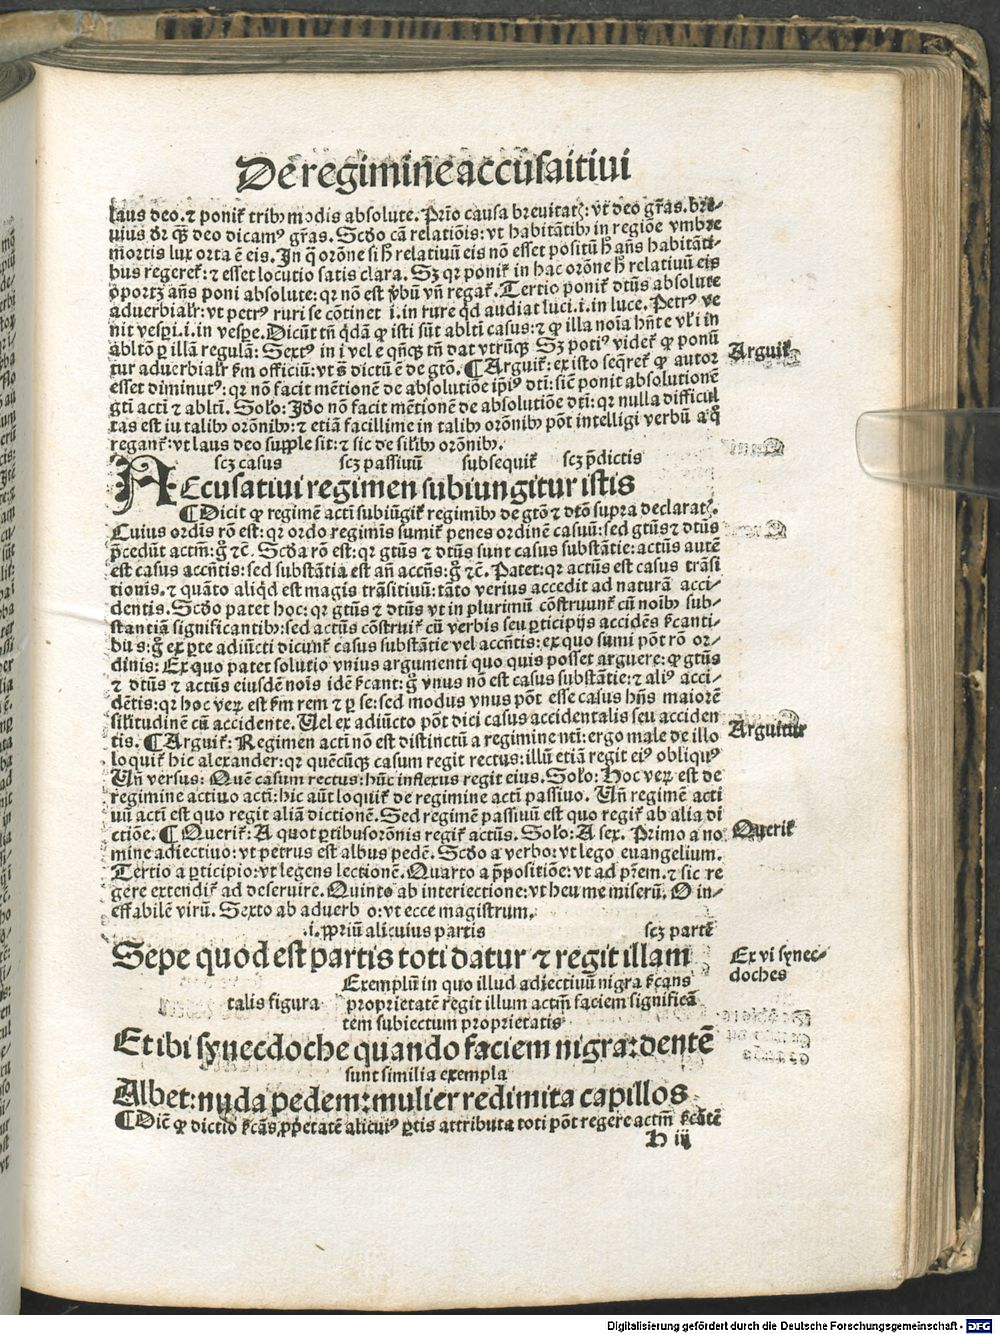 De regimine accusaitiui
laus deo. ⁊ poniť tribꝰ modis absolute. Prīo causa breuitatꝭ: vt deo grās. bre-
uius dr̄ qꝫ deo dicamꝰ grās. Scd̄o cā relatiōis: vt habitātibꝰ in regiōe vmbre
mortis lux orta ē eis. In q̄ orōne si hͦ relatiuū eis nō esset positū hͦ añs habitāti-
bus regereť: ⁊ esset locutio satis clara. Sꝫ qr poniť in hac orōne hͦ relatiuū eis
oportꝫ añs poni absolute: qr nō est v̄bū vñ regať. Tertio poniť dtūs absolute
aduerbialr̄: vt petrꝰ ruri se cōtinet .i. in rure qd audiat luci .i. in luce. Petrꝰ ve
nit vesp̄i .i. in vesꝑe. Dicūt tñ qdā ꝙ isti sūt ablti casus: ⁊ ꝙ illa noīa hn̄t e vl' i in
abltō ꝑ illā regulā: Sextꝰ in i vel e qñqꝫ tñ dat vtrūqꝫ Sꝫ potiꝰ videť ꝙ ponū
tur aduerbialr̄ ẜm officiū: vt s̄ dictū ē de gtō. ¶ Arguiť: ex isto seq̄reť ꝙ autor
esset diminutꝰ: qr nō facit mētionē de absolutiōe ip̄iꝰ dti: sic̄ ponit absolutionē
gti acti ⁊ ablti. Solo: Ido nō facit mētionē de absolutiōe dti: qr nulla difficul
tas est iu talibꝰ orōnibꝰ: ⁊ etiā facillime in talibꝰ orōnibꝰ pōt intelligi verbū a q̄
reganť: vt laus deo supple sit: ⁊ sic de silibꝰ orōnibꝰ.
scꝫ casus scꝫ passiuū subsequiť scꝫ p̄dictis
ACcusatiui regimen subiungitur istis
¶ Dicit ꝙ regimē acti subiūgiť regimibꝰ de gtō ⁊ dtō supra declaratꝭ.
Cuius ordīs rō est: qr ordo regimīs sumiť penes ordinē casuū: sed gtūs ⁊ dtūs
p̄cedūt actm̄: gͦ ⁊c̄. Scd̄a rō est: qr gtūs ⁊ dtūs sunt casus substātie: actūs autē
est casus accn̄tis: sed substātia est añ accñs: gͦ ⁊c̄. Patet: qr actūs est casus trāsi
tionis. ⁊ quāto aliqd est magis trāsitiuū: tāto verius accedit ad naturā acci-
dentis. Scd̄o patet hoc: qr gtūs ⁊ dtūs vt in plurimū cōstruunť cū noībꝰ sub-
stantiā significantibꝰ: sed actūs cōstruiť cū verbis seu ꝑticipijs accidēs ẜcanti-
bus: gͦ ex ꝑte adiūcti dicunť casus substātie vel accn̄tis: ex quo sumi pōt rō or-
dinis: Ex quo patet solutio vnius argumenti quo quis posset arguere: ꝙ gtūs
⁊ dtūs ⁊ actūs eiusdē noīs idē ẜcant: gͦ vnus nō est casus substātie: ⁊ aliꝰ acci-
dētis: qr hoc verꝫ est ẜm rem ⁊ ꝑ se: sed modus vnus pōt esse casus hn̄s maiorē
silitudinē cū accidente. Uel ex adiūcto pōt dici casus accidentalis seu acciden
tis. ¶ Arguiť: Regimen acti nō est distinctū a regimine nti: ergo male de illo
loquiť hic alexander: qr quēcūqꝫ casum regit rectus: illū etiā regit eiꝰ obliquꝰ
Uñ versus: Quē casum rectus: hūc inflexus regit eius. Solo: Hoc verꝫ est de
regimine actiuo acti: hic aūt loquiť de regimine acti passiuo. Uñ regimē acti
uū acti est quo regit aliā dictionē. Sed regimē passiuū est quo regiť ab alia di
ctiōe. ¶ Queriť: A quot ꝑtibus orōnis regiť actūs. Solo: A sex. Primo a no
mine adiectiuo: vt petrus est albus pedē. Scd̄o a verbo: vt lego euangelium.
Tertio a ꝑticipio: vt legens lectionē. Quarto a p̄positiōe: vt ad pr̄em. ⁊ sic re
gere extendiť ad deseruire. Quinto ab interiectione: vt heu me miserū. O in-
effabilē virū. Sexto ab aduerb o: vt ecce magistrum.
.i. ꝓpriū alicuius partis scꝫ partē
Sepe quod est partis toti datur ⁊ regit illam
Exemplū in quo illud adiectiuū nigra ẜcans
talis figura proprietatē regit illum actm̄ faciem significā
tem subiectum proprietatis
Et ibi synecdoche quando faciem nigra: dentē
sunt similia exempla
Albet: nuda pedem: mulier redimita capillos
¶ Dic̄ ꝙ dictio ẜcās ꝓp̄etatē alicuiꝰ ꝑtis attributa toti pōt regere actm̄ ẜcātē
H iij
Arguiť
Arguitur
Queriť
Ex vi synec-
doches
Digitalisierung gefördert durch die Deutsche Forschungsgemeinschaft - DFG